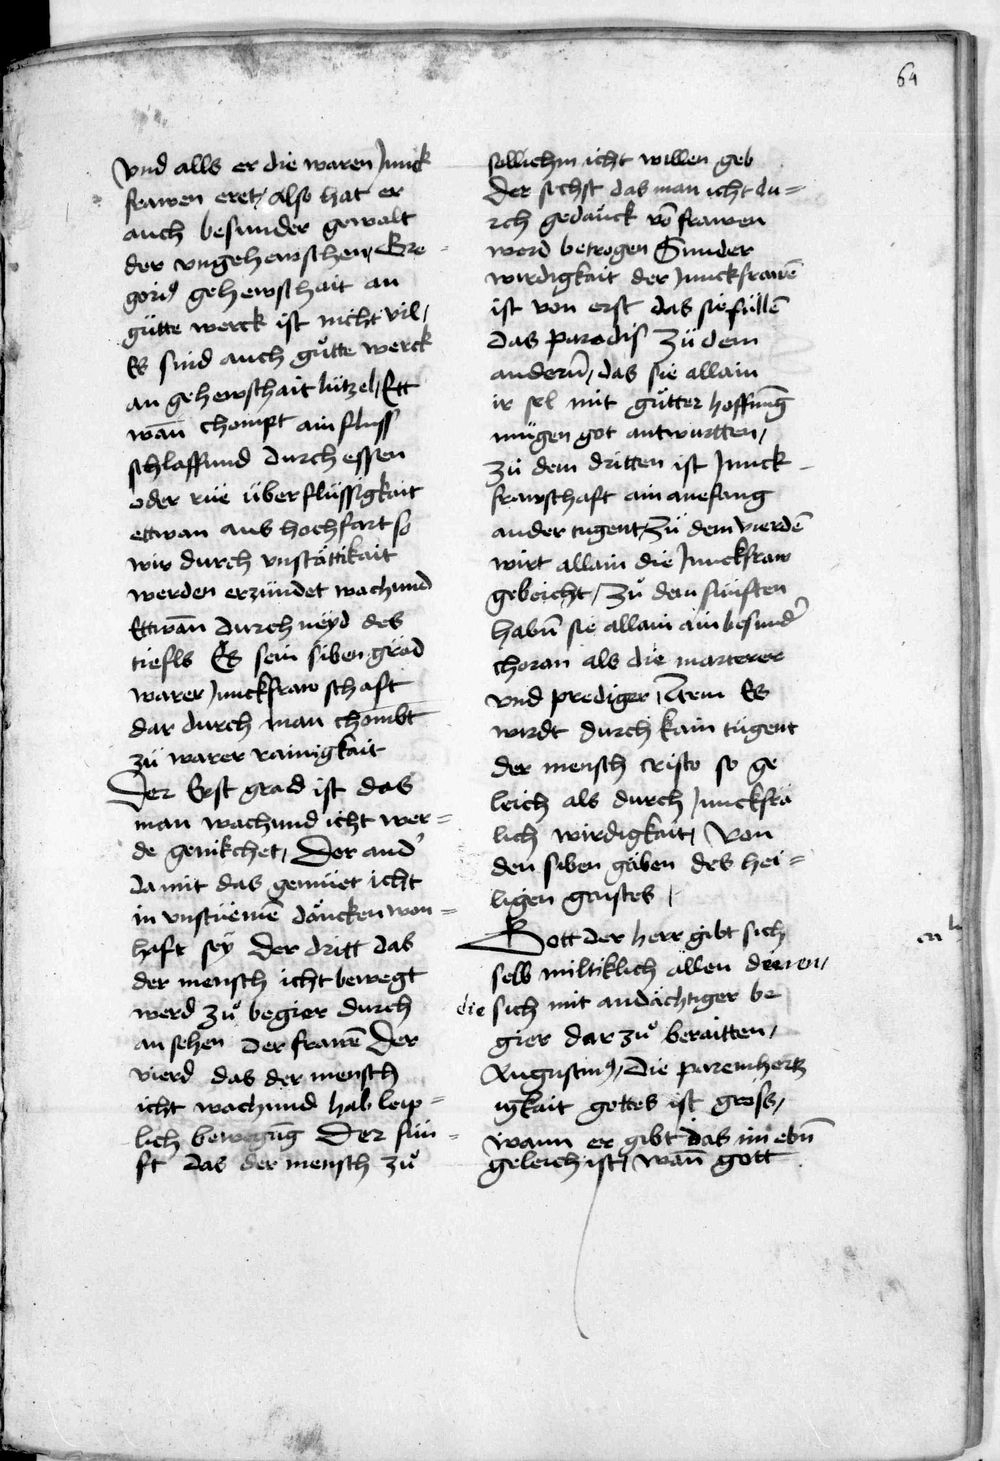 64
vnd alls er die waren Junck
frawen eret / also hat er
auch besunder gewalt
der vngehewschen / Gre-
gori9 gehewschait an
gütte werck ist nicht vil /
Es sind auch gůtte werck
an gehewschait lützel / Ett
wan̄ chompt ain fluss
schlaffund durch essen
oder rüe überflüssigkait
ettwan aus hochfart so
wir durch vnstättikait
werden erzündet wachund
Ettwan̄ durch neyd des
tiefls Es sein siben grad
warer Junckfraw schaft
dar durch man chombt
zü warer rainigkait
Der Erst grad ist das
man wachund icht wer=
de genikchet / Der and'
damit das gemüet icht
in vnstüemē däncken won=
haft sey Der dritt das
der mensch icht bewegt
werd zů begier durch
an sehen der frawē Der
vierd das der mensch
icht wachund hab leip=
lich bewegūg Der fün=
ft das der mensch zů
sollichm icht willen geb
Der sechst das man icht du=
rch gedänck vō frawen
werd betrogen Sunder
wirdigkait der Junckfrawē
ist von erst das sie füllē
das paradis Zü dem
andern̄ / das sie allain
ir sel mit gůtter hoffnūg
mügen got antwurtten /
Zü dem dritten ist Junck-
frawschaft ain anefang
ander tugent / Zü dem vierdē
wirt allain die Junckfraw
geleicht / Zů dem fünften
habn̄ sie allain ain besund'
choran als die marterer
vnd prediger / Item Es
wirdt durch kain tügent
der mensch cristo so ge
leich als durch Junckfrä
lich wirdigkait / Von
den siben gaben des hei=
ligen gaistes /
Gott der herr gibt sich
selb miltiklich allen denen /
die sich mit andächtiger be
gier dar zů beraitten /
Augustin9 / Die paremhertz
igkait gottes ist gross /
wann er gibt das im ebn̄
geleich ist / wan̄ gott